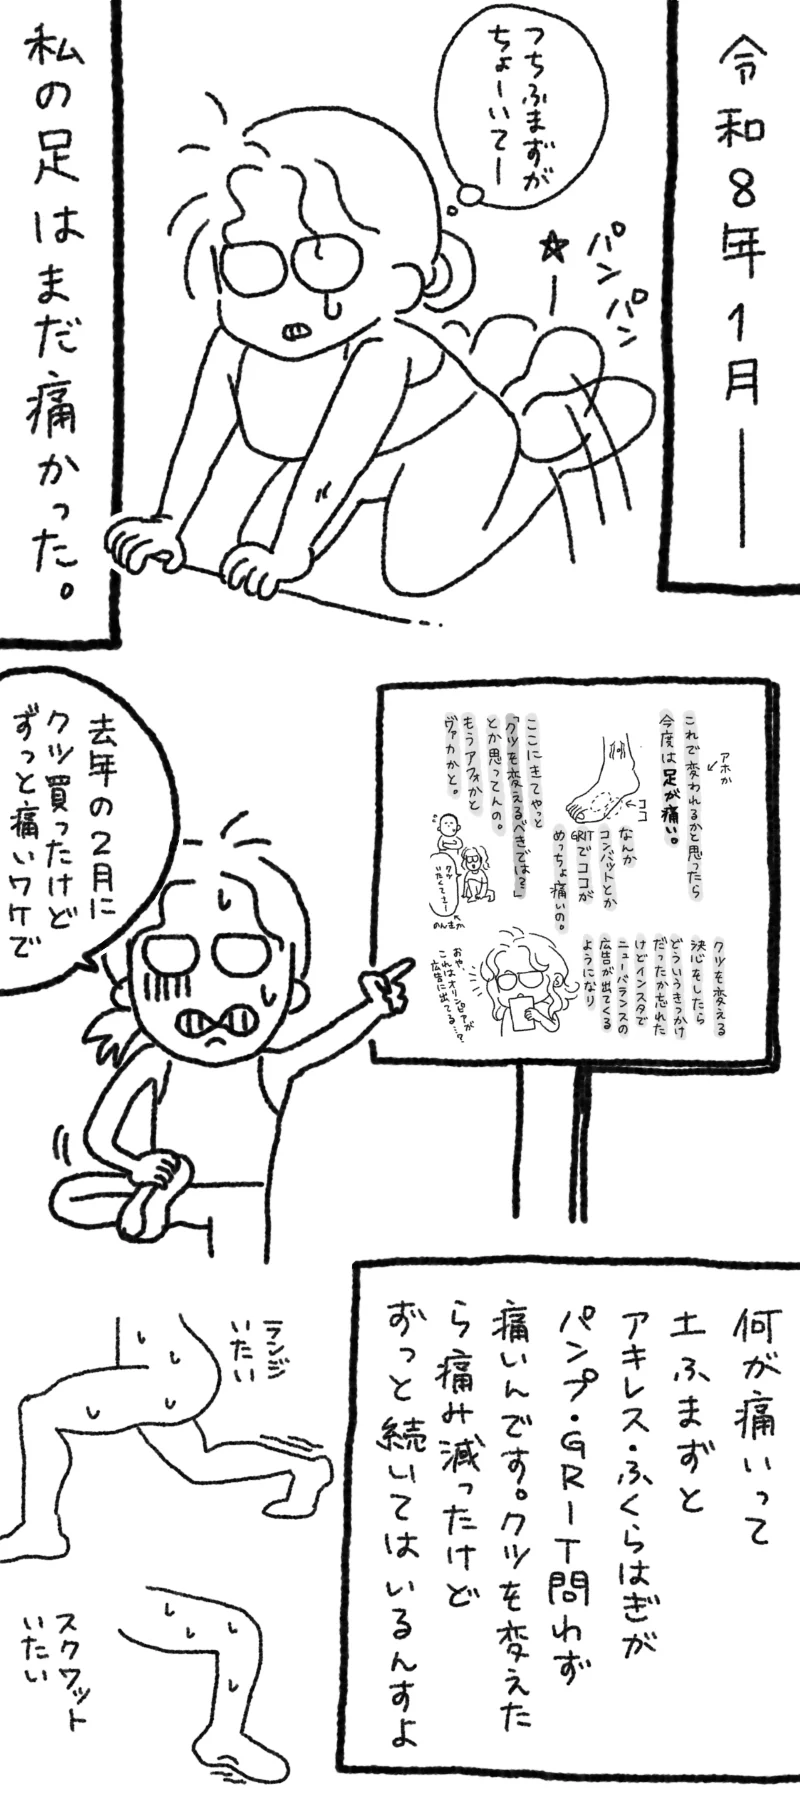 令和8年1月―
つちふまずが
ちょーいてー
パンパン
私の足はまだ痛かった。
アホか
これで変われるかと思ったら
今度は足が痛い。
ココ
ココ
なんか
コンバットとか
GRITでココが
めっちょ痛いの。
ここにきてやっと
「クツを変えるべきでは？」
とか思ってんの。
もうアフォかと
ヴァカかと。
のんきか
クツを変える
決心をしたら
どういうきっかけ
だったか忘れた
けどインスタで
ニューバランスの
広告が出てくる
ようになり
おや、
これはオリンピアが
広告に出てる…？
去年の2月に
クツ買ったけど
ずっと痛いワケで
何が痛いって
土ふまずと
アキレス・ふくらはぎが
パンプ・GRIT問わず
痛いんです。クツを変えた
ら痛み減ったけど
ずっと続いてはいるんすよ
ランジ
いたい
スクワット
いたい